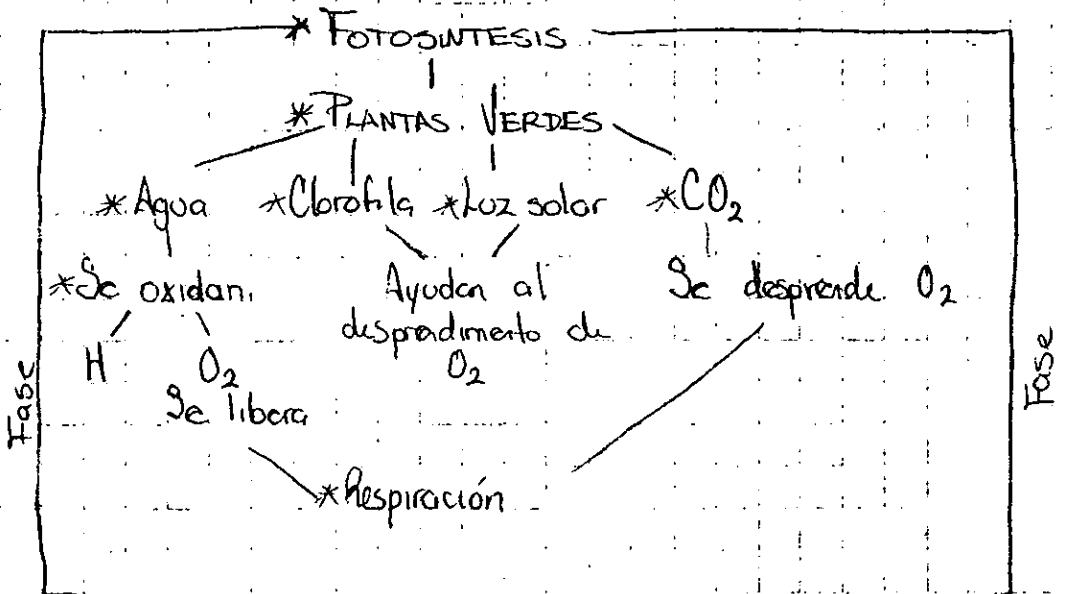 * FOTOSINTESIS
* PLANTAS VERDES
* Agua * Clorofila * Luz solar * CO₂
* Se oxidan. Ayudan al Se desprende O₂
desprendimento de
H O₂ O₂
Se libera
* Respiración
Fase
Fase